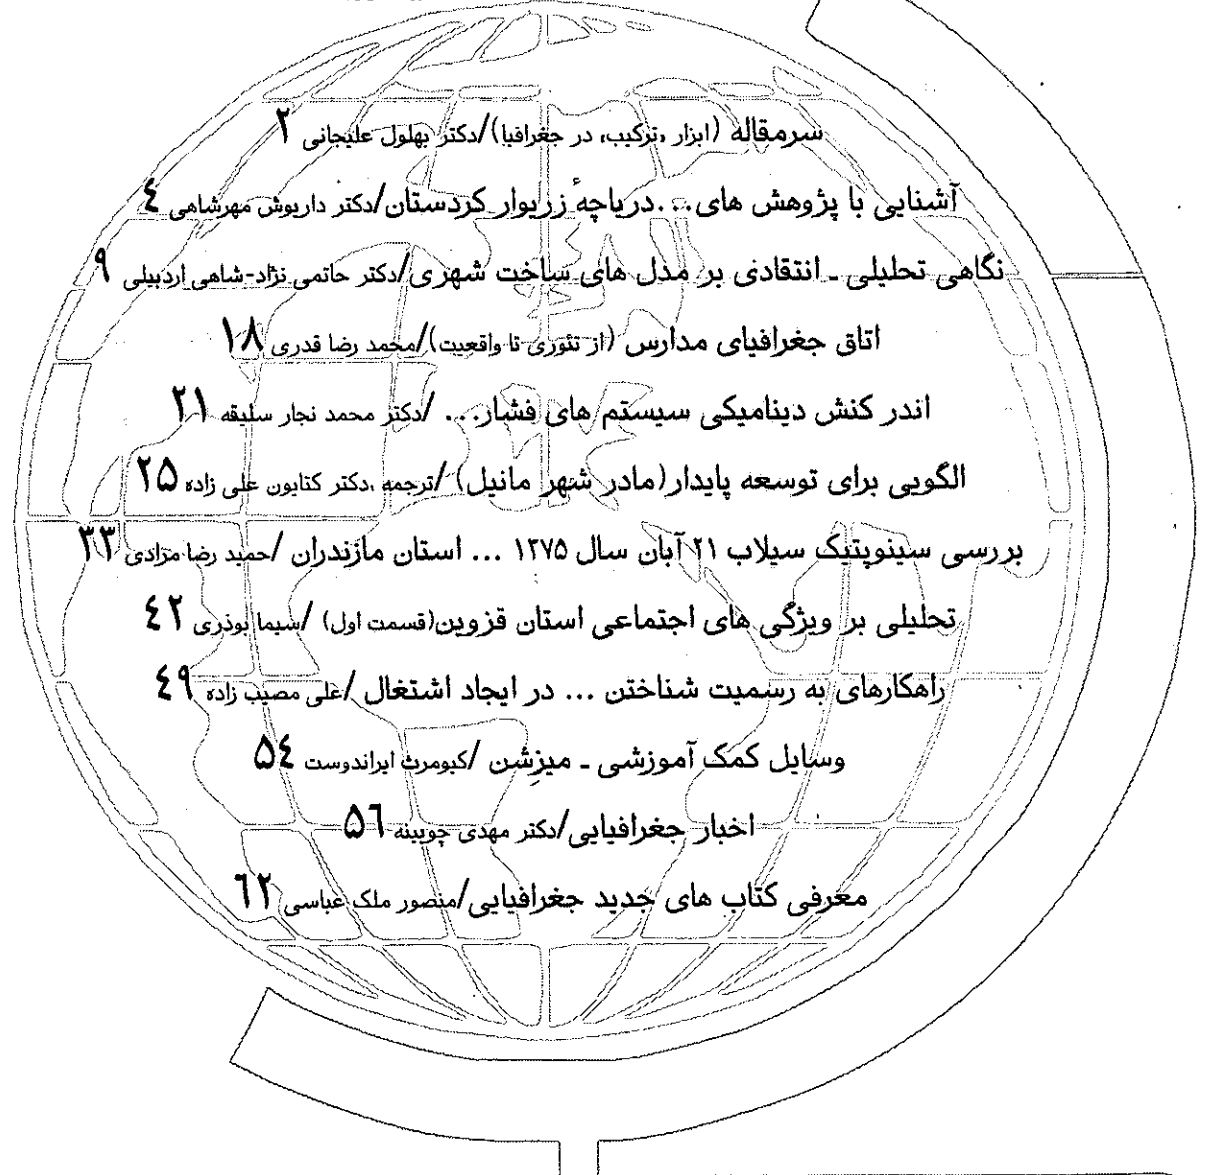 سرمقاله (ابزار «ترکیب» در جغرافیا)/دکتر بهلول علیجانی ۲
آشنایی با پژوهش های...دریاچهٔ زریوار کردستان/دکتر داریوش مهرشاهی ۴
نگاهی تحلیلی ـ انتقادی بر مدل های ساخت شهری/دکتر حاتمی نژاد-شاهی اردبیلی ۹
اتاق جغرافیای مدارس (از تئوری تا واقعیت)/محمد رضا قدری ۱۸
اندر کنش دینامیکی سیستم های فشار... /دکتر محمد نجار سلیقه ۲۱
الگویی برای توسعه پایدار(مادر شهر مانیل) /ترجمه ،دکتر کتایون علی زاده ۲۵
بررسی سینوپتیک سیلاب ۲۱ آبان سال ۱۳۷۵ ... استان مازندران /حمید رضا مرادی ۳۳
تحلیلی بر ویژگی های اجتماعی استان قزوین(قسمت اول) /سیما بوذری ۴۲
راهکارهای به رسمیت شناختن ... در ایجاد اشتغال /علی مصیب زاده ۴۹
وسایل کمک آموزشی ـ میزِشن /کیومرث ایراندوست ۵۴
اخبار جغرافیایی/دکتر مهدی چوبینه ۵۶
معرفی کتاب های جدید جغرافیایی/منصور ملک عباسی ۶۲